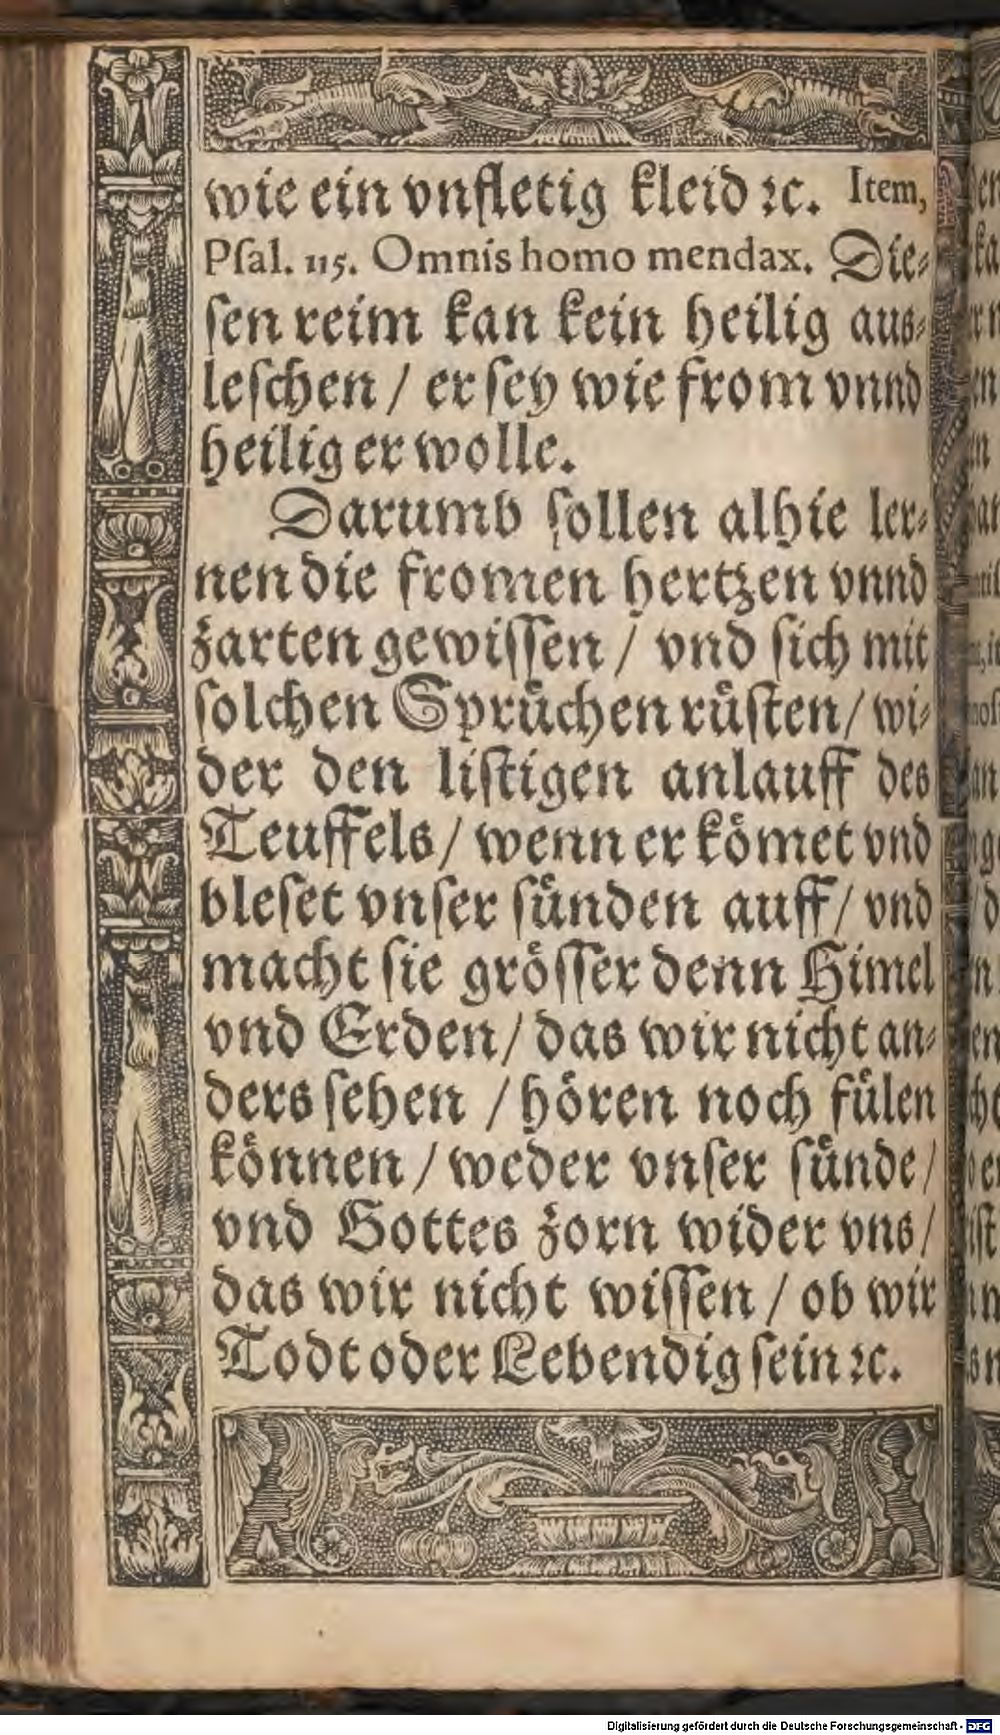 wie ein vnfletig kleid ꝛc. Item,
Psal. 115. Omnis homo mendax. Die⸗
sen reim kan kein heilig aus⸗
leschen / er sey wie from vnnd
heilig er wolle.
Darumb sollen alhie ler⸗
nen die fromen hertzen vnnd
zarten gewissen / vnd sich mit
solchen Sprüchen rüsten / wi⸗
der den listigen anlauff des
Teuffels / wenn er kömet vnd
bleset vnser sünden auff / vnd
macht sie grösser denn Himel
vnd Erden / das wir nicht an⸗
ders sehen / hören noch fülen
können / weder vnser sünde /
vnd Gottes zorn wider vns /
das wir nicht wissen / ob wir
Todt oder Lebendig sein ꝛc.
Digitalisierung gefördert durch die Deutsche Forschungsgemeinschaft - DFG